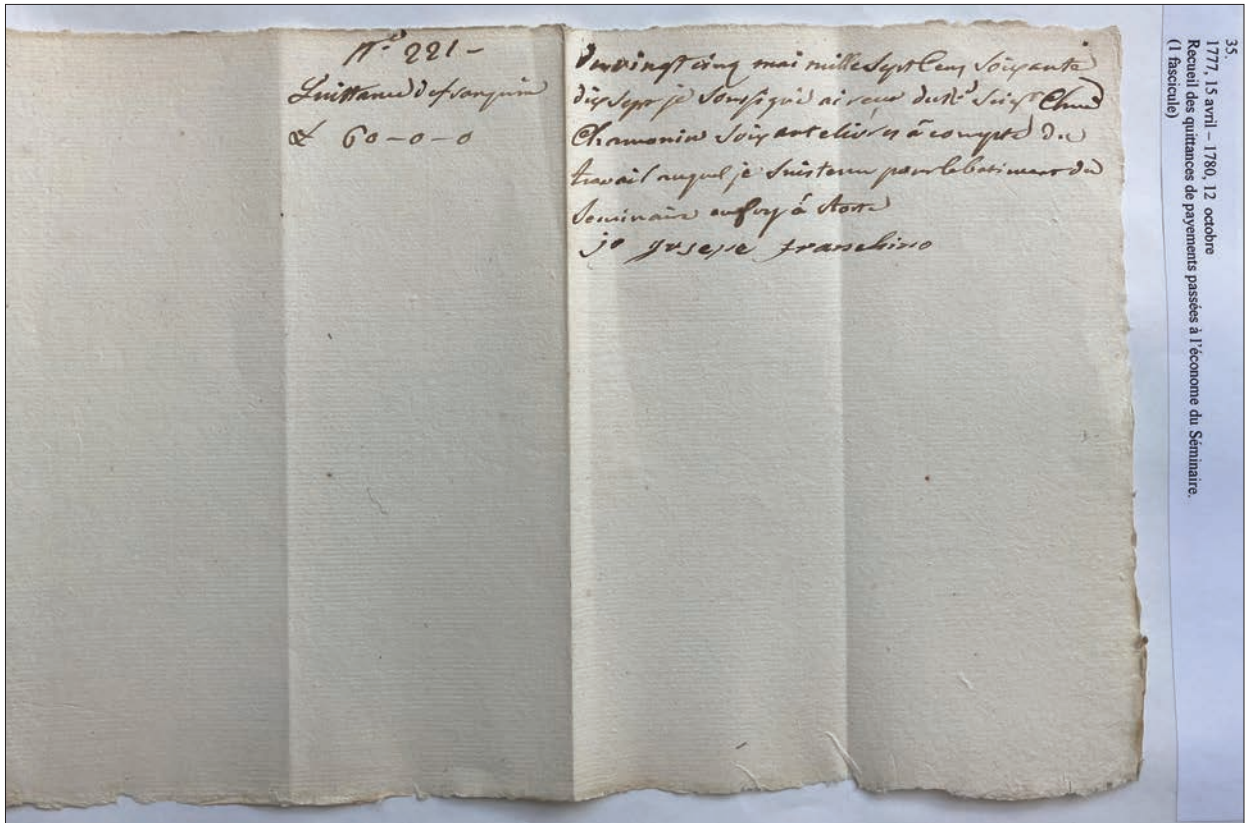 N.° 221 -
Quittance de fransquin
£ 60-0-0
Du vingt cinq mai mille sept cens soixante
dix sept je soussigné ai reçu du R.d Seig.r Chne
Chamonin soixante livres à compte du
travail auquel je suis tenu pour le batiment du
Seminaire en foy à Aoste
jo gusepe franchino
35.
1777, 15 avril – 1780, 12 octobre
Recueil des quittances de payements passées à l'économe du Séminaire.
(1 fascicule)